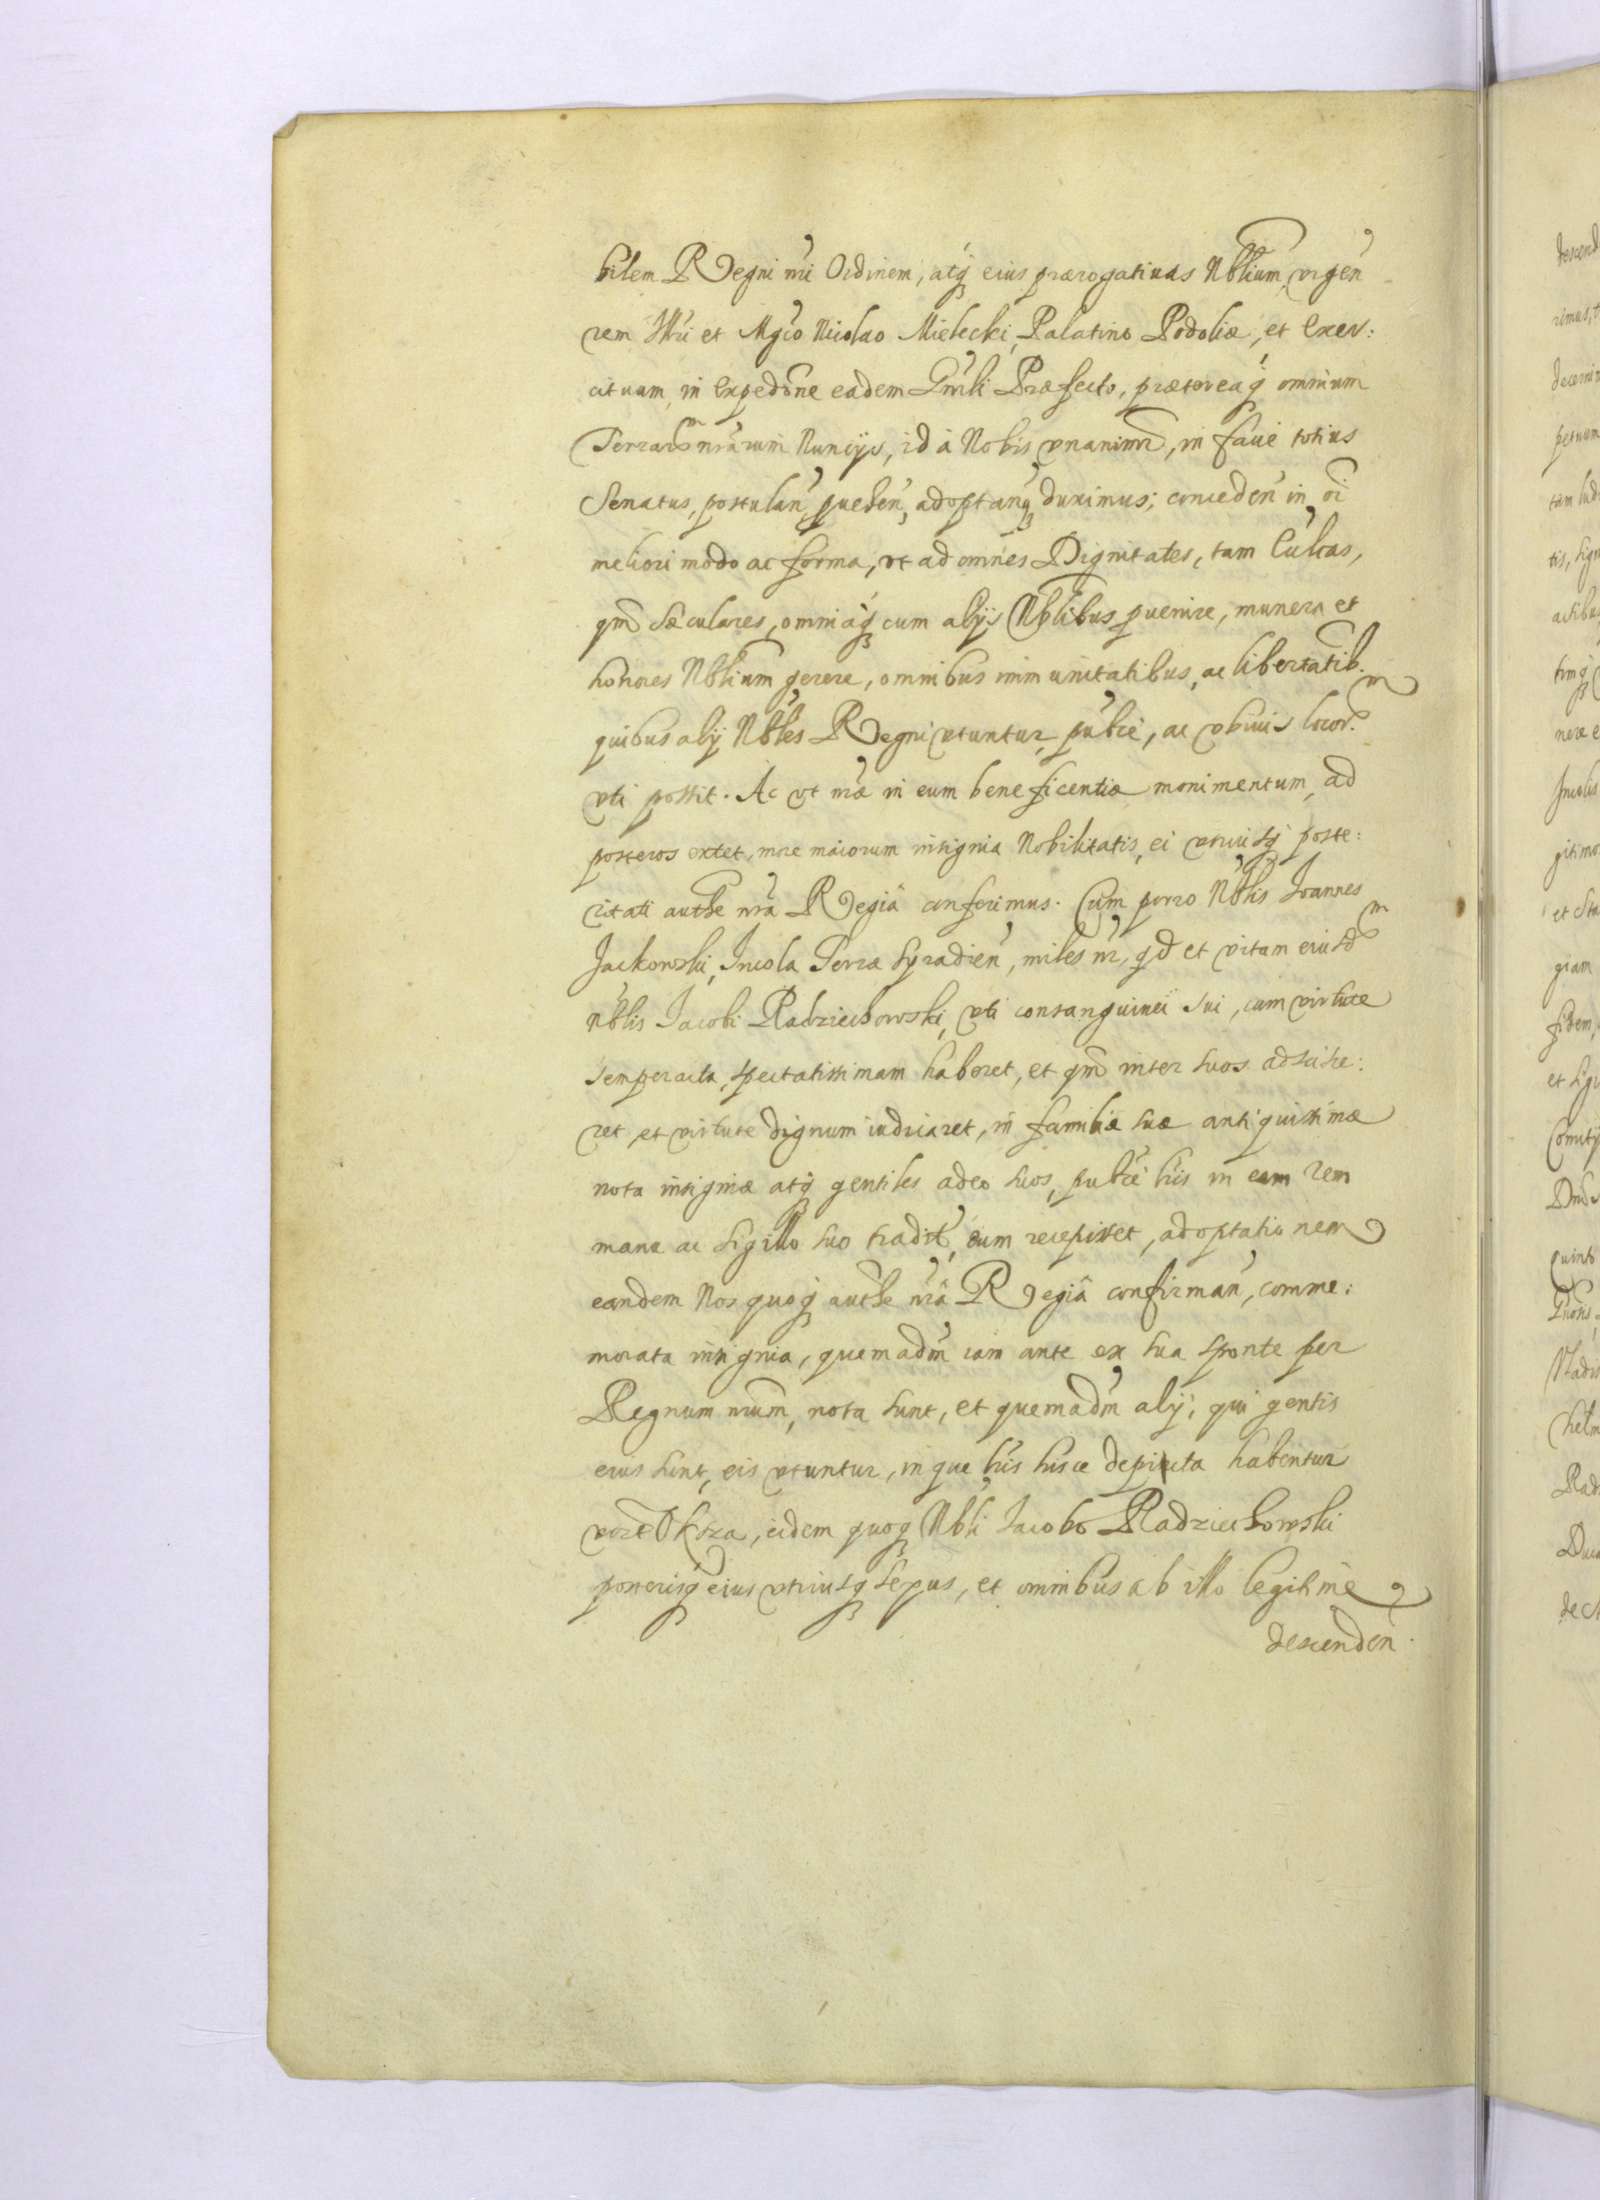 bilem Regni nri Ordinem, atq eius prærogatiuas Nbtlium, vrgen
rem Illri et Mgco Nicolao Mielecki, Palatino Podoliæ, et Exer:
cituum, in Expedōne eadem Gnrli Præfecto, prætereaq omnium
Terrarū nrārum Nuncijs, id à Nobis vnanimr, in facie totius
Senatus, postulan, pueben, adoptanq duximus; conceden in oi
meliori modo ac forma, vt ad omnes Dignitates, tam Ecclticas,
qm Sæculares, omniaq cum alijs Nbtlibus puenire, munera et
honores Nbtlium gerere, omnibus immunitatibus, ac libertatib.
quibus alij Nbtles Regni vtuntur, publce, ac vbiuis locor.
vti possit. Ac vt nræ in eum beneficentiæ monimentum, ad
posteros extet, more maiorum insignia Nobilitatis, ei eiusq poste:
ritati authe nra Regiâ conferimus. Cum porro Nbtlis Ioannes
Jackowski, Incola Terræ Syradien, miles nr, qd et vitam eiusd
Nbtlis Iacobi Radziechowski, vti consanguinei sui, cum virtute
semper acta, spectatissimam haberet, et qm inter suos adscisce:
ret, et virtute dignum iudicaret, in familiæ suæ antiquissimæ
nota insigniæ atq gentiles adeo suos, publce lris in eam rem
manu ac sigillo suo tradit, eum recepisset, adoptationem
eandem Nos quoq authe nrâ Regiâ confirman, comme:
morata insignia, quemadm iam ante ex sua sponte per
Regnum nrum, nota sunt, et quemadm alij, qui gentis
eius sunt, eis vtuntur, inque lris hisce depicta habentur
vocat Oksza, eidem quoq Nbtli Iacobo Radziechowski
posterisq eius vtriusq sexus, et omnibus ab illo legitime
descenden